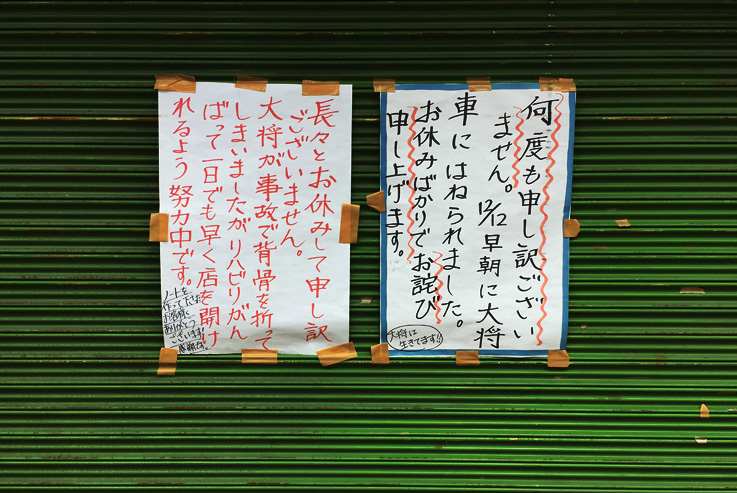 何度も申し訳ござい
ません。12/12早朝に大将
車にはねられました。
お休みばかりでお詫び
申し上げます。
大将は
生きてます!!
長々とお休みして申し訳
ございません。
大将が事故で背骨を折って
しまいましたがリハビリがん
ばって一日でも早く店を開け
れるよう努力中です。
ノートを
作って下さった
お客様
ありがとう
ございます!